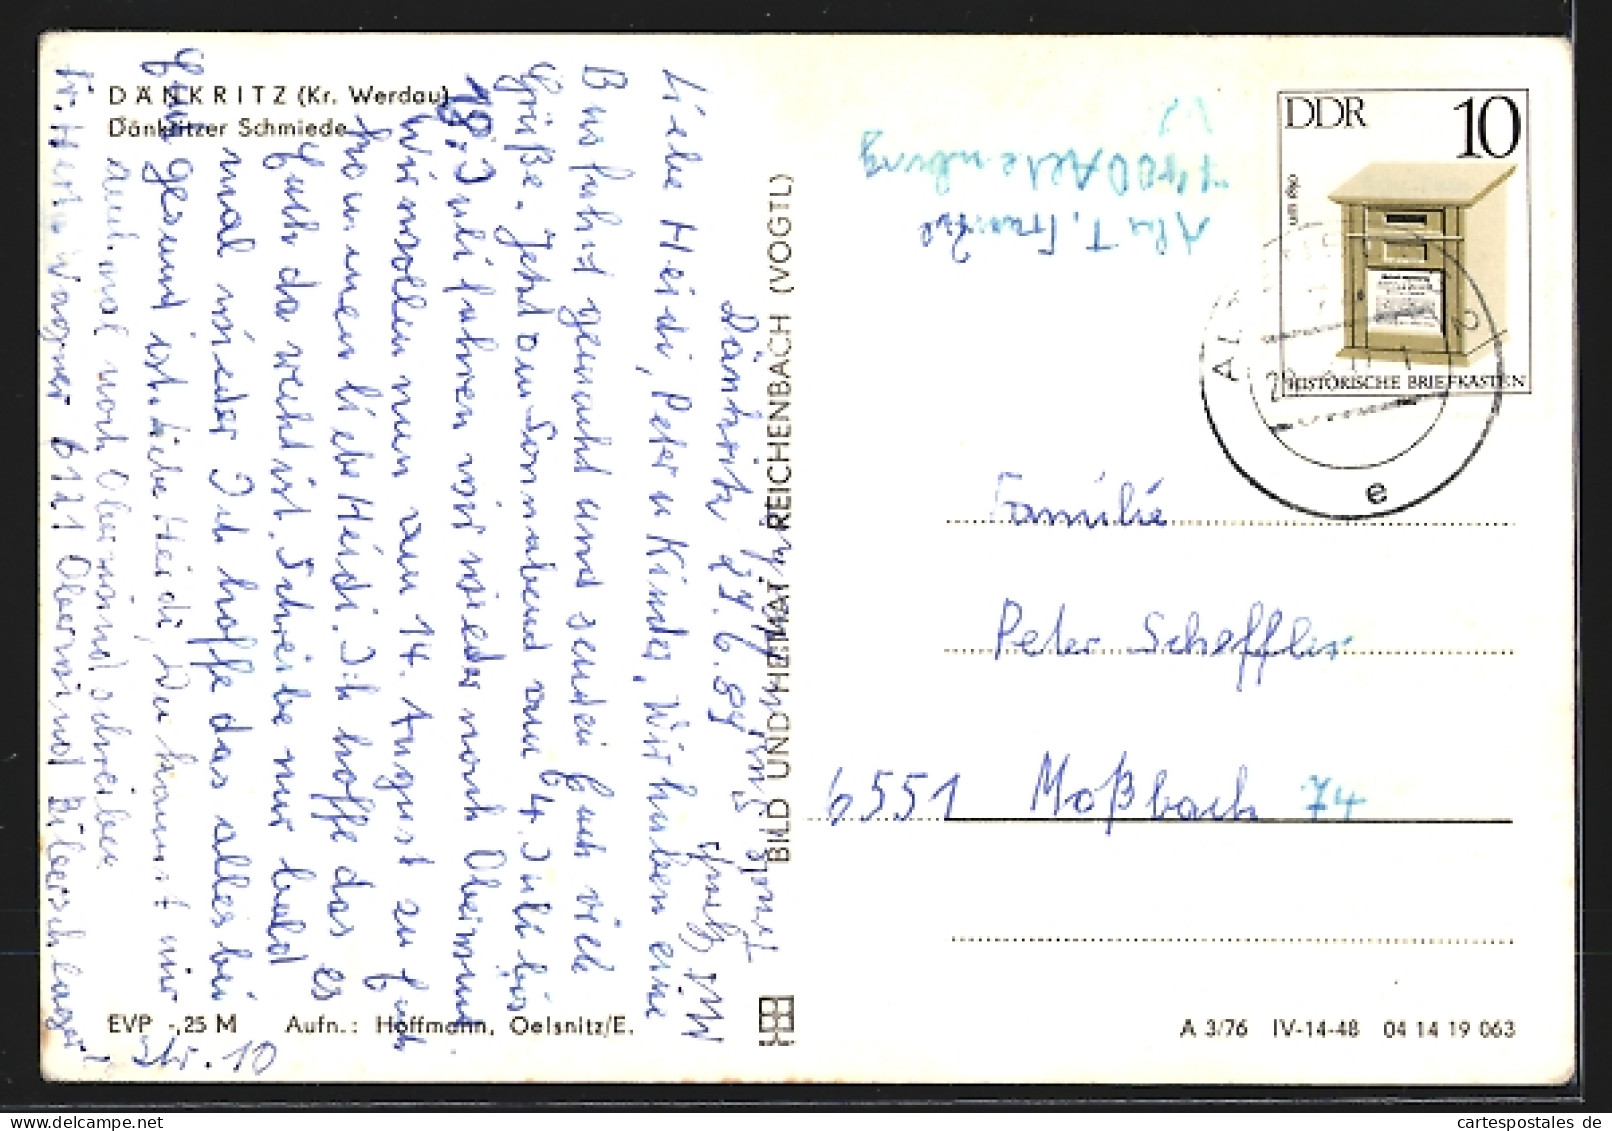 DÄNKRITZ (Kr. Werdau)
Dänkritzer Schmiede
Dänkritz 27.6.89
Liebe Heidi, Peter u Kinder, Wir haben eine
Busfahrt gemacht und senden Euch viele
Grüße. Jetzt am Sonnabend vom 4. Juli bis
18. Juli fahren wir wieder nach Oberwind
Wir wollen nun am 14. August zu Euch
kommen liebe Heidi. Ich hoffe das es
Euch da recht ist. Schreibe mir bald
mal wieder Ich hoffe das alles bei
Euch gesund ist. Liebe Heidi, Du kannst mir
auch mal nach Oberwind schreiben
Fr. Herta Wagner 6121 Oberwind Biberschlager
Str. 10
EVP -,25 M
Aufn.: Hoffmann, Oelsnitz/E.
BILD UND HEIMAT REICHENBACH (VOGTL)
7400 Altenburg
DDR 10
um 1860
HISTORISCHE BRIEFKASTEN
e
Familie
Peter Scheffler
6551 Moßbach 74
A 3/76 IV-14-48 04 14 19 063
cartespostales de